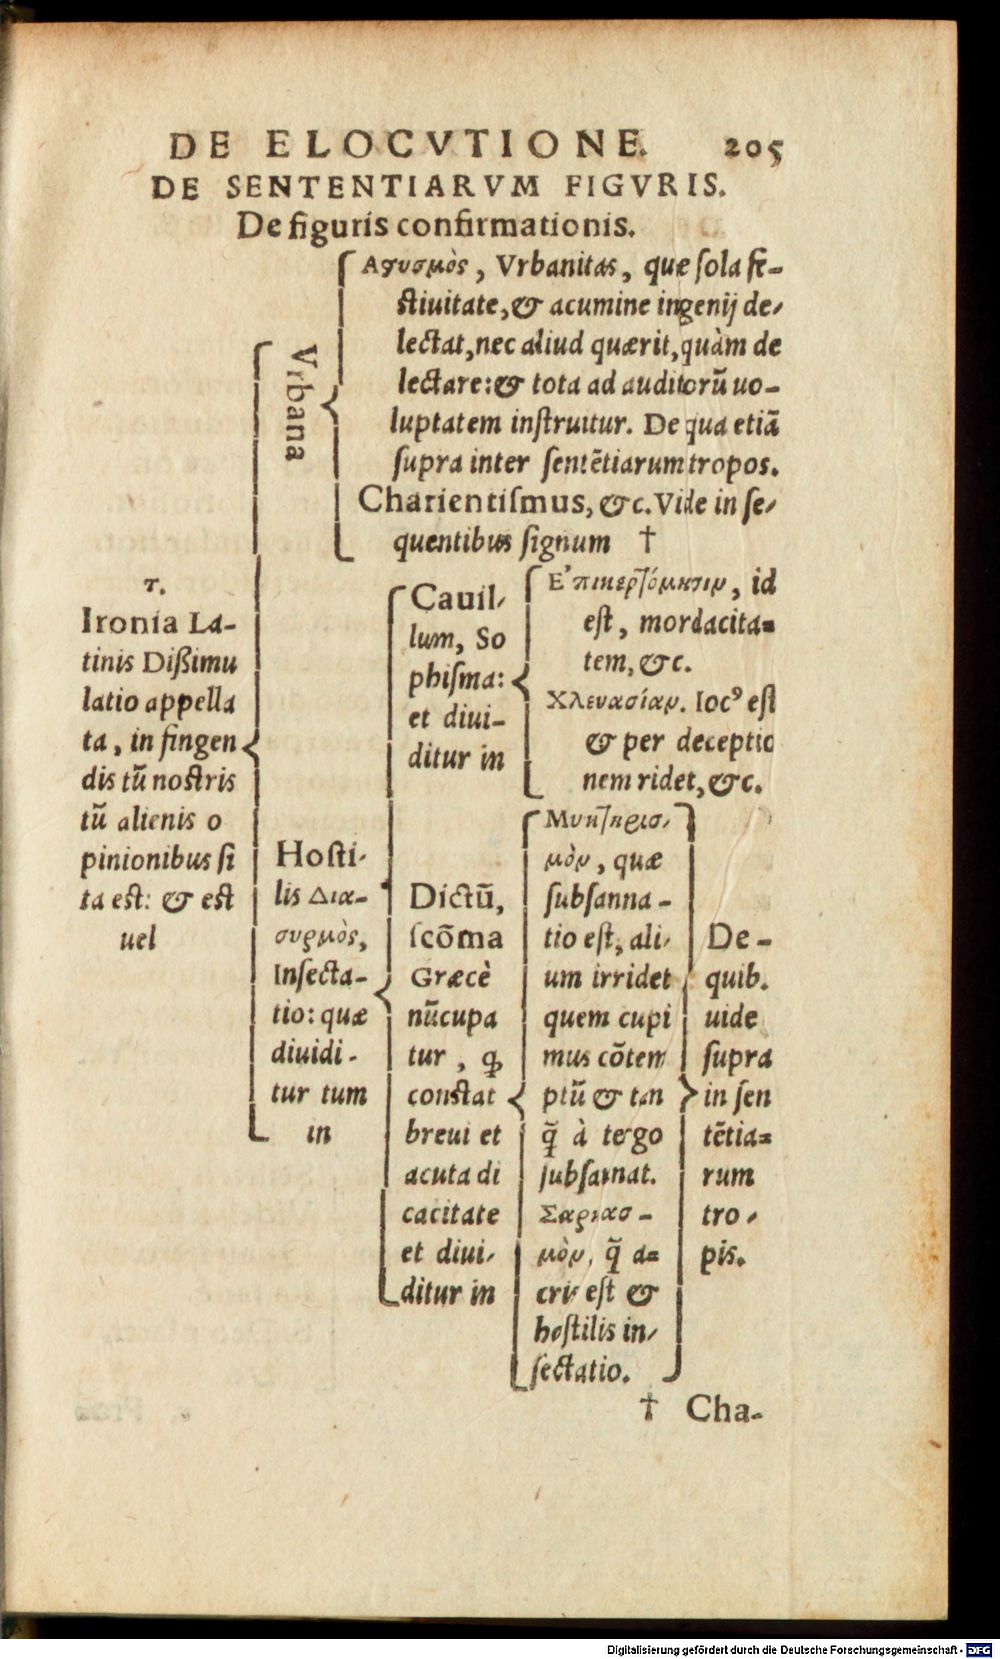 DE ELOCVTIONE. 205
DE SENTENTIARVM FIGVRIS.
De figuris confirmationis.
τ.
Ironia La-
tinis Dißimu
latio appella
ta, in fingen
dis tũ nostris
tũ alienis o
pinionibus si
ta est: & est
uel
Vrbana
Αςυσμὸς, Vrbanitas, quæ sola fe-
stiuitate, & acumine ingenij de-
lectat, nec aliud quærit, quàm de
lectare: & tota ad auditorũ uo-
luptatem instruitur. De qua etiã
supra inter sentẽtiarum tropos.
Charientismus, &c. Vide in se-
quentibus signum †
Hosti-
lis Δια-
συρμὸς,
Insecta-
tio: quæ
diuidi-
tur tum
in
Cauil-
lum, So
phisma:
et diui-
ditur in
Ε’πικερτόμησιν, id
est, mordacita-
tem, &c.
Χλευασίαν. Iocꝰ est
& per deceptio
nem ridet, &c.
Dictũ,
scõma
Græcè
nũcupa
tur, ꝙ
constat
breui et
acuta di
cacitate
et diui-
ditur in
Μυκτηρισ-
μὸν, quæ
subsanna-
tio est, ali-
um irridet
quem cupi
mus cõtem
ptũ & tan
q̃ à tergo
subsannat.
Σαρκασ-
μὸν, q̃ a-
cris est &
hostilis in-
sectatio.
De-
quib.
uide
supra
in sen
tẽtia-
rum
tro-
pis.
† Cha-
Digitalisierung gefördert durch die Deutsche Forschungsgemeinschaft - DFG